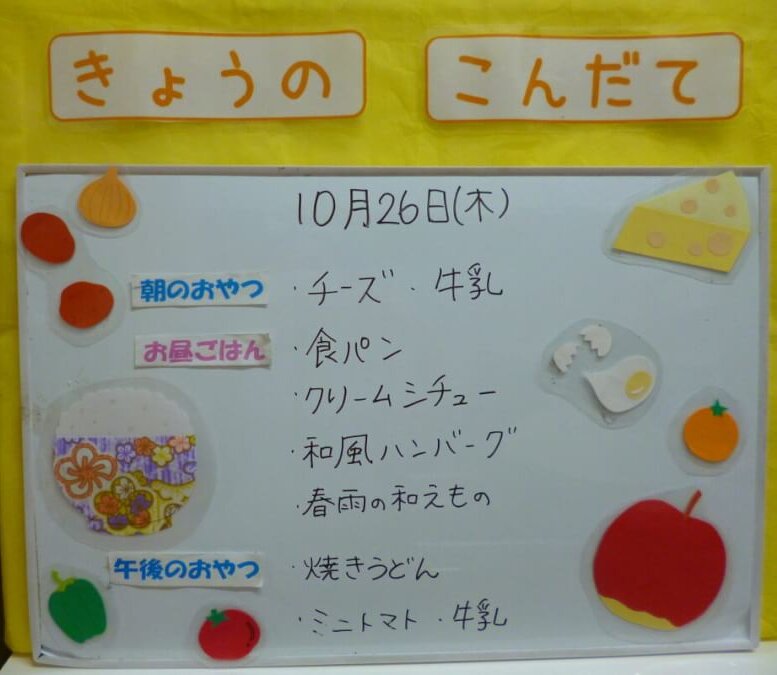 きょうの こんだて
10月26日(木)
朝のおやつ ・チーズ ・牛乳
お昼ごはん ・食パン
・クリームシチュー
・和風ハンバーグ
・春雨の和えもの
午後のおやつ ・焼きうどん
・ミニトマト ・牛乳